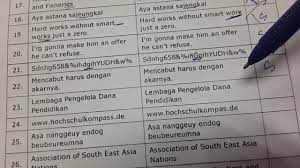 17.
and Fisheries
18. Aya astana sajeungkal Aya astana sajeungkal
19. Hard works without smart Hard works without smart work
works just a zero. just a zero.
20. I'm gonna make him an offer I'm gonna make him an offer
he can't refuse. he can't refuse.
21.
22. Mencabut harus dengan Mencabut harus dengan
akarnya. akarnya.
23. Lembaga Pengelola Dana Lembaga Pengelola Dana
Pendidikan Pendidikan
24. www.hochschulkompass.de www.hochschulkompass.de
25. Asa nanggeuy endog Asa nanggeuy endog
beubeureumna beubeureumna
26. Association of South East Asia Association of South East Asian
Nations